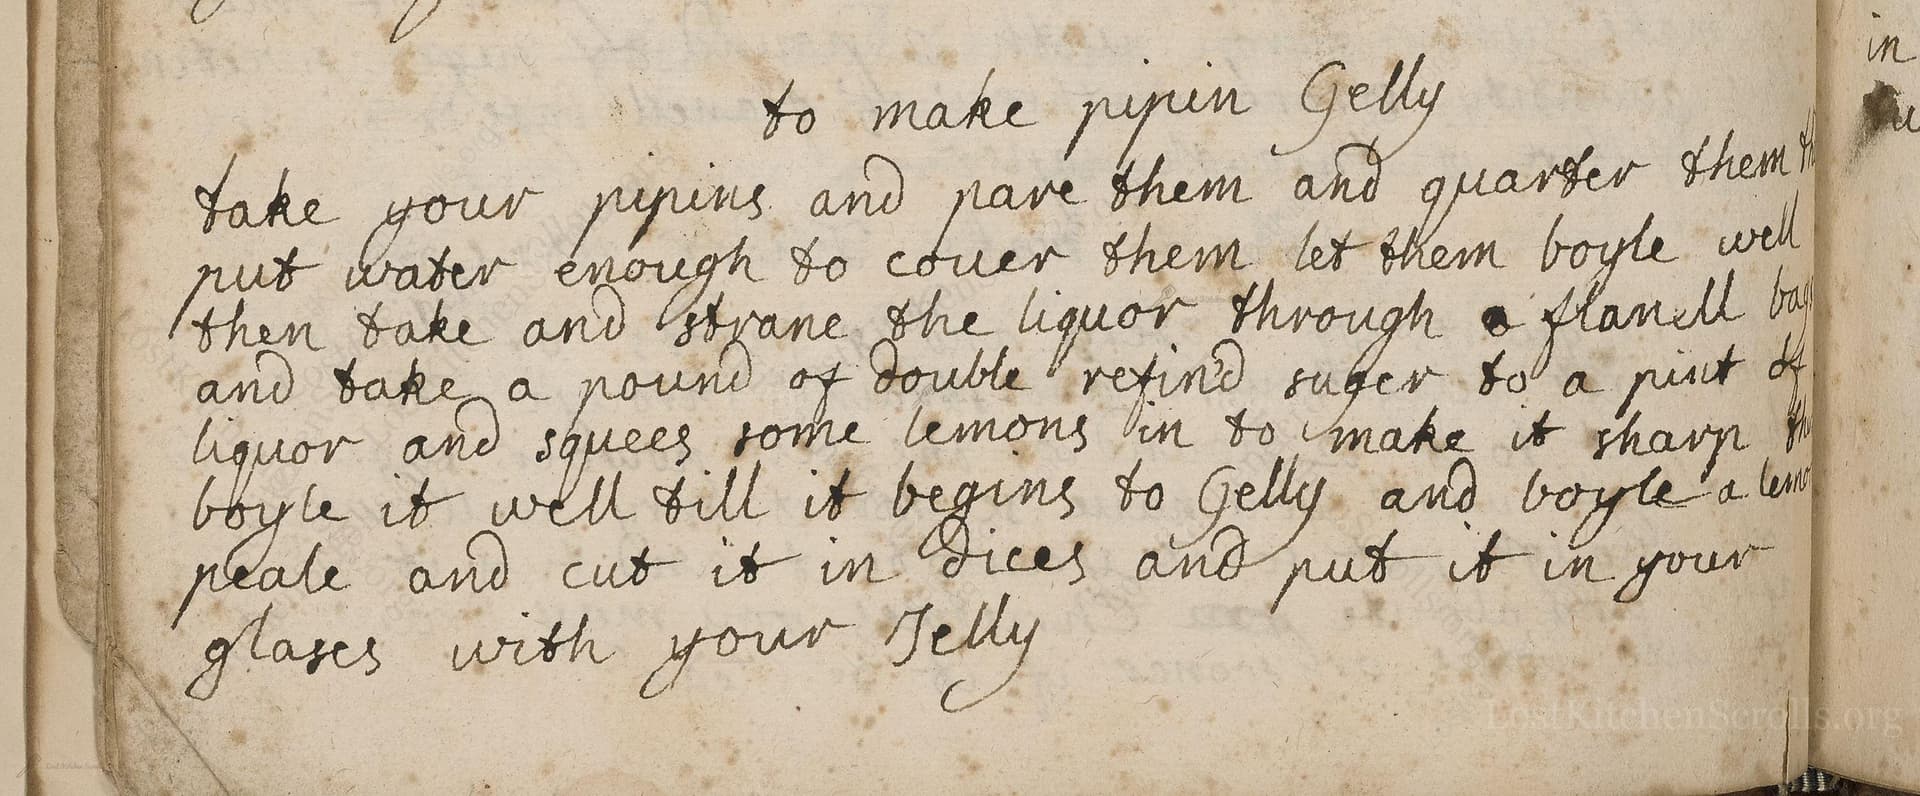 to make pipin Gelly
take your pipins and pare them and quarter them
put water enough to couer them let them boyle well
then take and strane the liquor through a flanell bag
and take a pound of double refin'd suger to a pint of
liquor and squees some lemons in to make it sharp
boyle it well till it begins to Gelly and boyle a lemo
peale and cut it in dices and put it in your
glases with your Jelly
in
LostKitchenScrolls.org